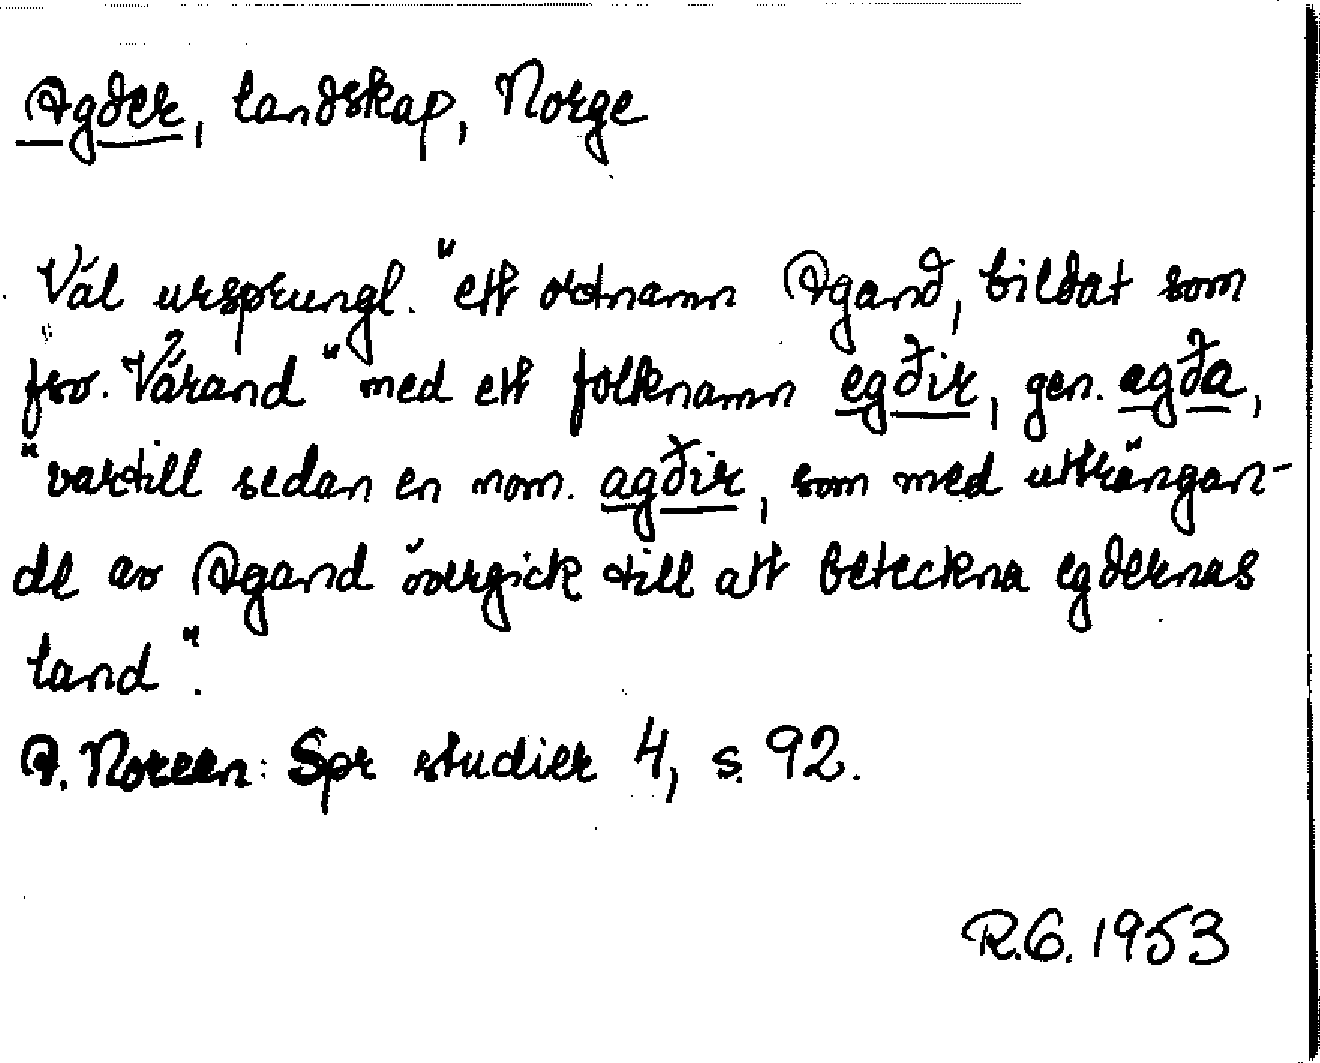 Agder, landskap, Norge
Väl ursprungl. "ett ortnamn Agand, bildat som
fsv. Vǣrand" med ett folknamn egðir, gen. agða,
"vartill sedan en nom. agðir, som med utträngan-
de av Agand övergick till att beteckna egdernas
land".
A. Noreen: Spr studier 4, s. 92.
R.G. 1953